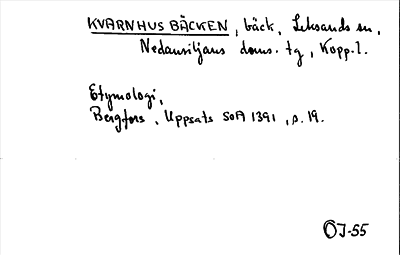 KVARNHUS BÄCKEN, bäck, Leksands sn,
Nedansiljans doms. tg, Kopp. l.
Etymologi,
Bergfors, Uppsats SOA 1391, s. 19.
ÖJ-55